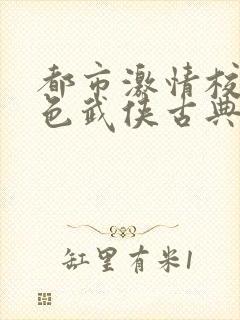 都市激情校
色武侠古典
缸里有米1